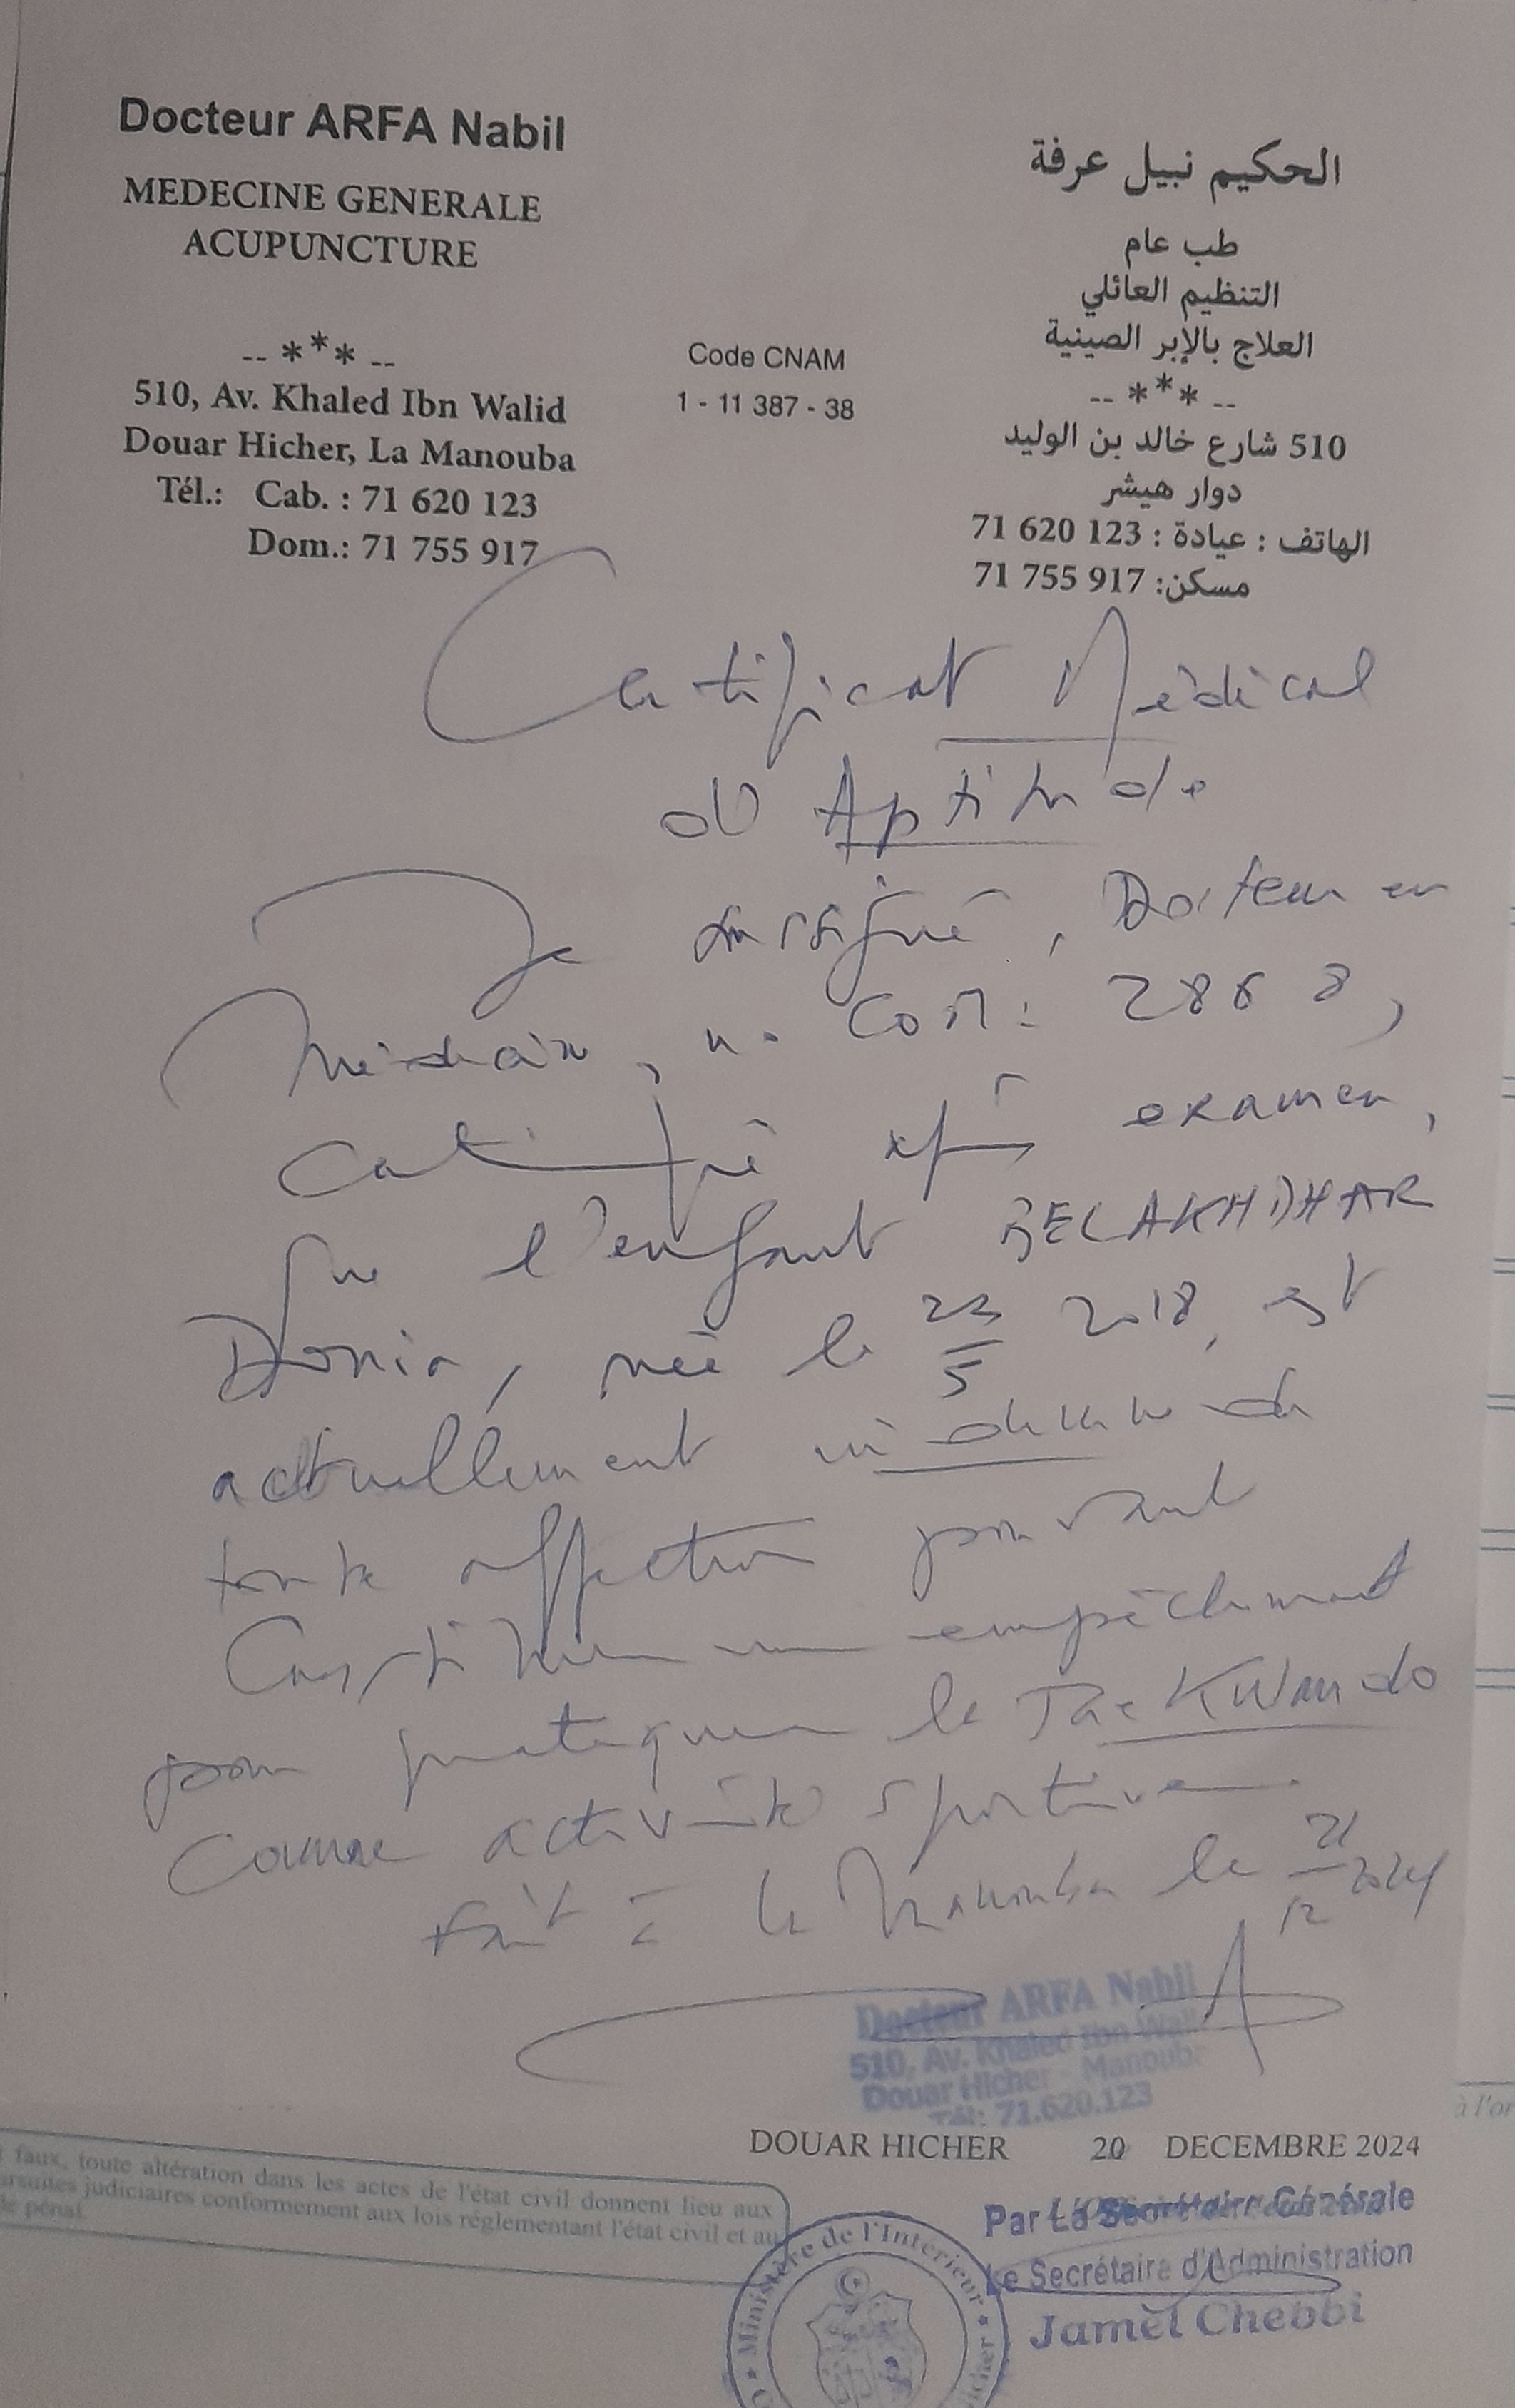 Docteur ARFA Nabil
MEDECINE GENERALE
ACUPUNCTURE
-- *** --
510, Av. Khaled Ibn Walid
Douar Hicher, La Manouba
Tél.: Cab. : 71 620 123
Dom.: 71 755 917
Code CNAM
1 - 11 387 - 38
الحكيم نبيل عرفة
طب عام
التنظيم العائلي
العلاج بالإبر الصينية
-- *** --
510 شارع خالد بن الوليد
دوار هيشر
الهاتف : عيادة : 123 620 71
مسكن: 917 755 71
Certificat Médical
d'Aptitude
Je soussigné, Docteur en
Médecine, n° COM: 2868,
certifie après examen,
que l'enfant BELAKHDHAR
Donia, née le 23/5 2018, est
actuellement indemne de
toute affection pouvant
Constituer un empêchement
pour pratiquer le TaeKwando
Comme activité sportive.
Fait à la Manouba le 21/12 2024
Docteur ARFA Nabil
510, Av. Khaled Ibn Wali
Douar Hicher - Manouba
Tél: 71.620.123
à l'or
DOUAR HICHER 20 DECEMBRE 2024
faux, toute altération dans les actes de l'état civil donnent lieu aux
rsuites judiciaires conformement aux lois réglementant l'état civil et au
de pénal.
Par La Secrétaire Générale
Le Secrétaire d'Administration
Jamel Chebbi
Ministère de l'Interieur